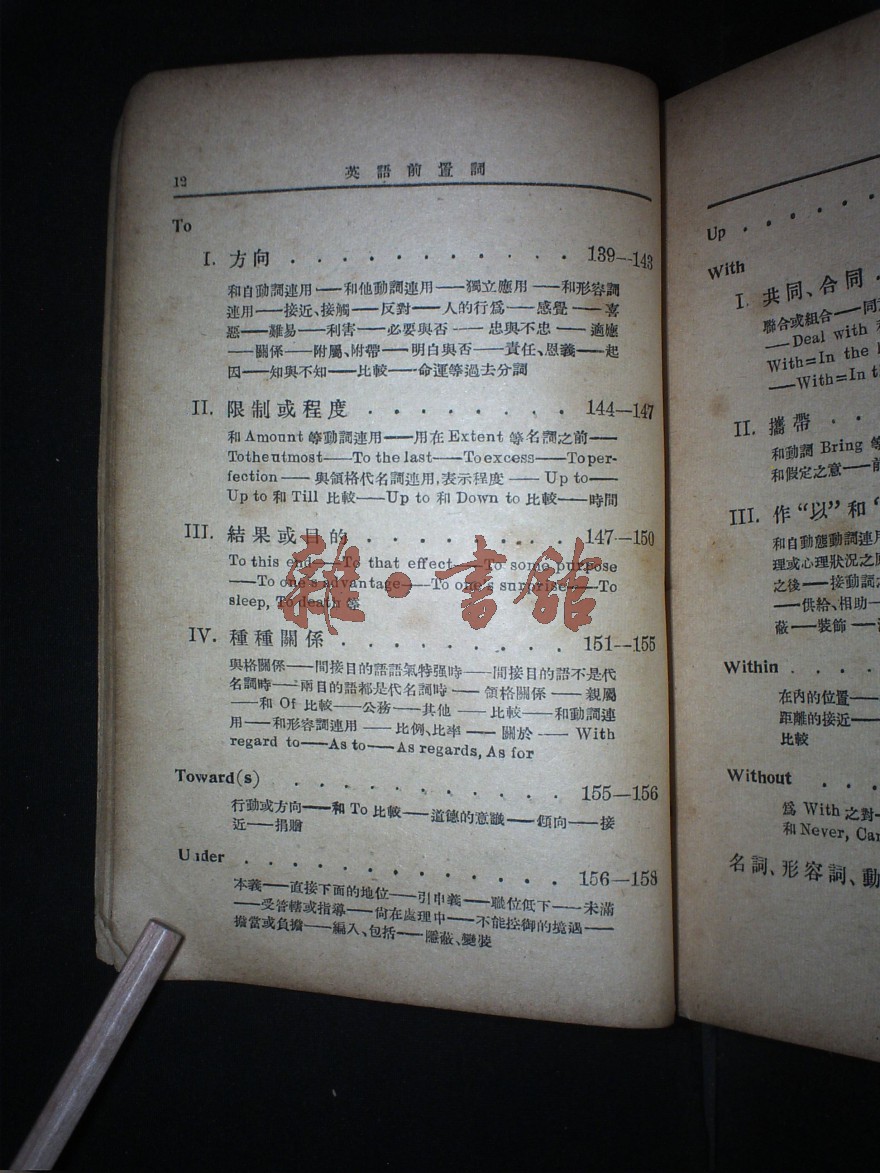 12 英語前置詞
To
I. 方向 . . . . . . . . . . . . 139—143
和自動詞連用——和他動詞連用——獨立應用——和形容詞
連用——接近、接觸——反對——人的行爲——感覺——喜
惡——難易——利害——必要與否——忠與不忠——適應
——關係——附屬、附帶——明白與否——責任、恩義——起
因——知與不知——比較——命運等過去分詞
II. 限制或程度 . . . . . . . . . 144—147
和 Amount 等動詞連用——用在 Extent 等名詞之前——
Totheutmost——To the last——Toexcess——Toper-
fection——與領格代名詞連用,表示程度——Up to——
Up to 和 Till 比較——Up to 和 Down to 比較——時間
III. 結果或目的 . . . . . . . . . 147—150
To this end——To that effect——To some purpose
——To one's advantage——To one's surprise——To
sleep, To death 等
IV. 種種關係 . . . . . . . . . . 151—155
與格關係——間接目的語語氣特强時——間接目的語不是代
名詞時——兩目的語都是代名詞時——領格關係——親屬
——和 Of 比較——公務——其他——比較——和動詞連
用——和形容詞連用——比例、比率——關於——With
regard to——As to——As regards, As for
Toward(s) . . . . . . . . . . . 155—156
行動或方向——和 To 比較——道德的意識——傾向——接
近——捐贈
Under . . . . . . . . . . . . 156—158
本義——直接下面的地位——引申義——職位低下——未滿
——受管轄或指導——尙在處理中——不能控御的境遇——
擔當或負擔——編入、包括——隱蔽、變裝
雜·書館
Up . . . . . . .
With
I. 共同、合同 .
聯合或組合——同
——Deal with
With=In the
——With=In t
II. 攜帶 . .
和動詞 Bring 等
和假定之意——
III. 作“以”和
和自動態動詞連用
理或心理狀況之
之後——接動詞
——供給、相助—
蔽——裝飾——
Within . . . .
在內的位置——
距離的接近——
比較
Without . . .
爲 With 之對—
和 Never, Can
名詞、形容詞、動